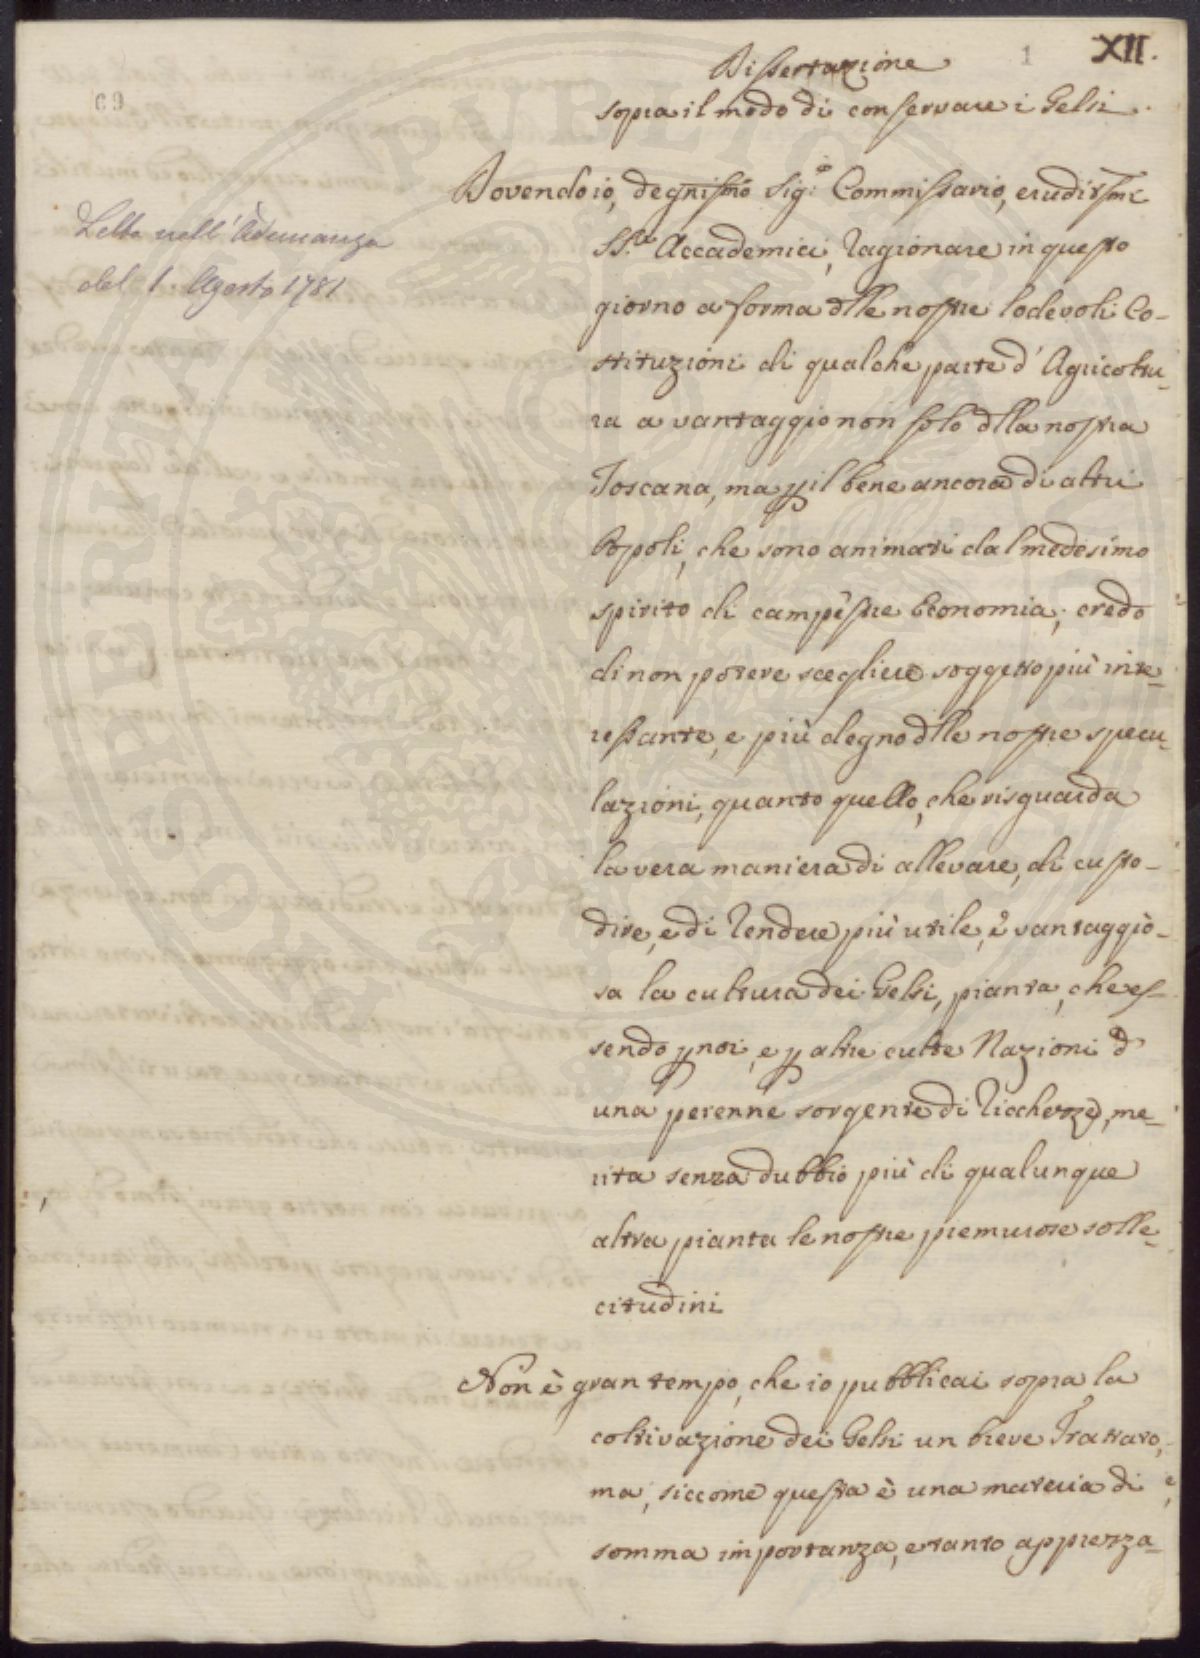 1 XII.
Dissertazione
sopra il modo di conservare i Gelsi.
69
Letta nell'Adunanza
del 1. Agosto 1781
Dovendo io, degnissmo Sig.io Commissario, erudissmi
SS.ri Accademici, ragionare in questo
giorno a forma dlle nostre lodevoli Co-
stituzioni di qualche parte d'Agricoltu-
ra a vantaggio non solo dlla nostra
Toscana, ma p il bene ancora di altri
Popoli, che sono animati dal medesimo
spirito di campestre Economia; credo
di non potere scegliere soggetto più inte-
ressante, e più degno dlle nostre specu-
lazioni, quanto quello, che risguarda
la vera maniera di allevare, di custo-
dire, e di rendere più utile, e vantaggio-
sa la cultura dei Gelsi, pianta, che es-
sendo p noi, e p altre culte Nazioni d
una perenne sorgente di ricchezze, me-
rita senza dubbio più di qualunque
altra pianta le nostre premurose solle-
citudini
Non è gran tempo, che io pubblicai sopra la
coltivazione dei Gelsi un breve Trattato,
ma, siccome questa è una materia di
somma importanza, e tanto apprezza-